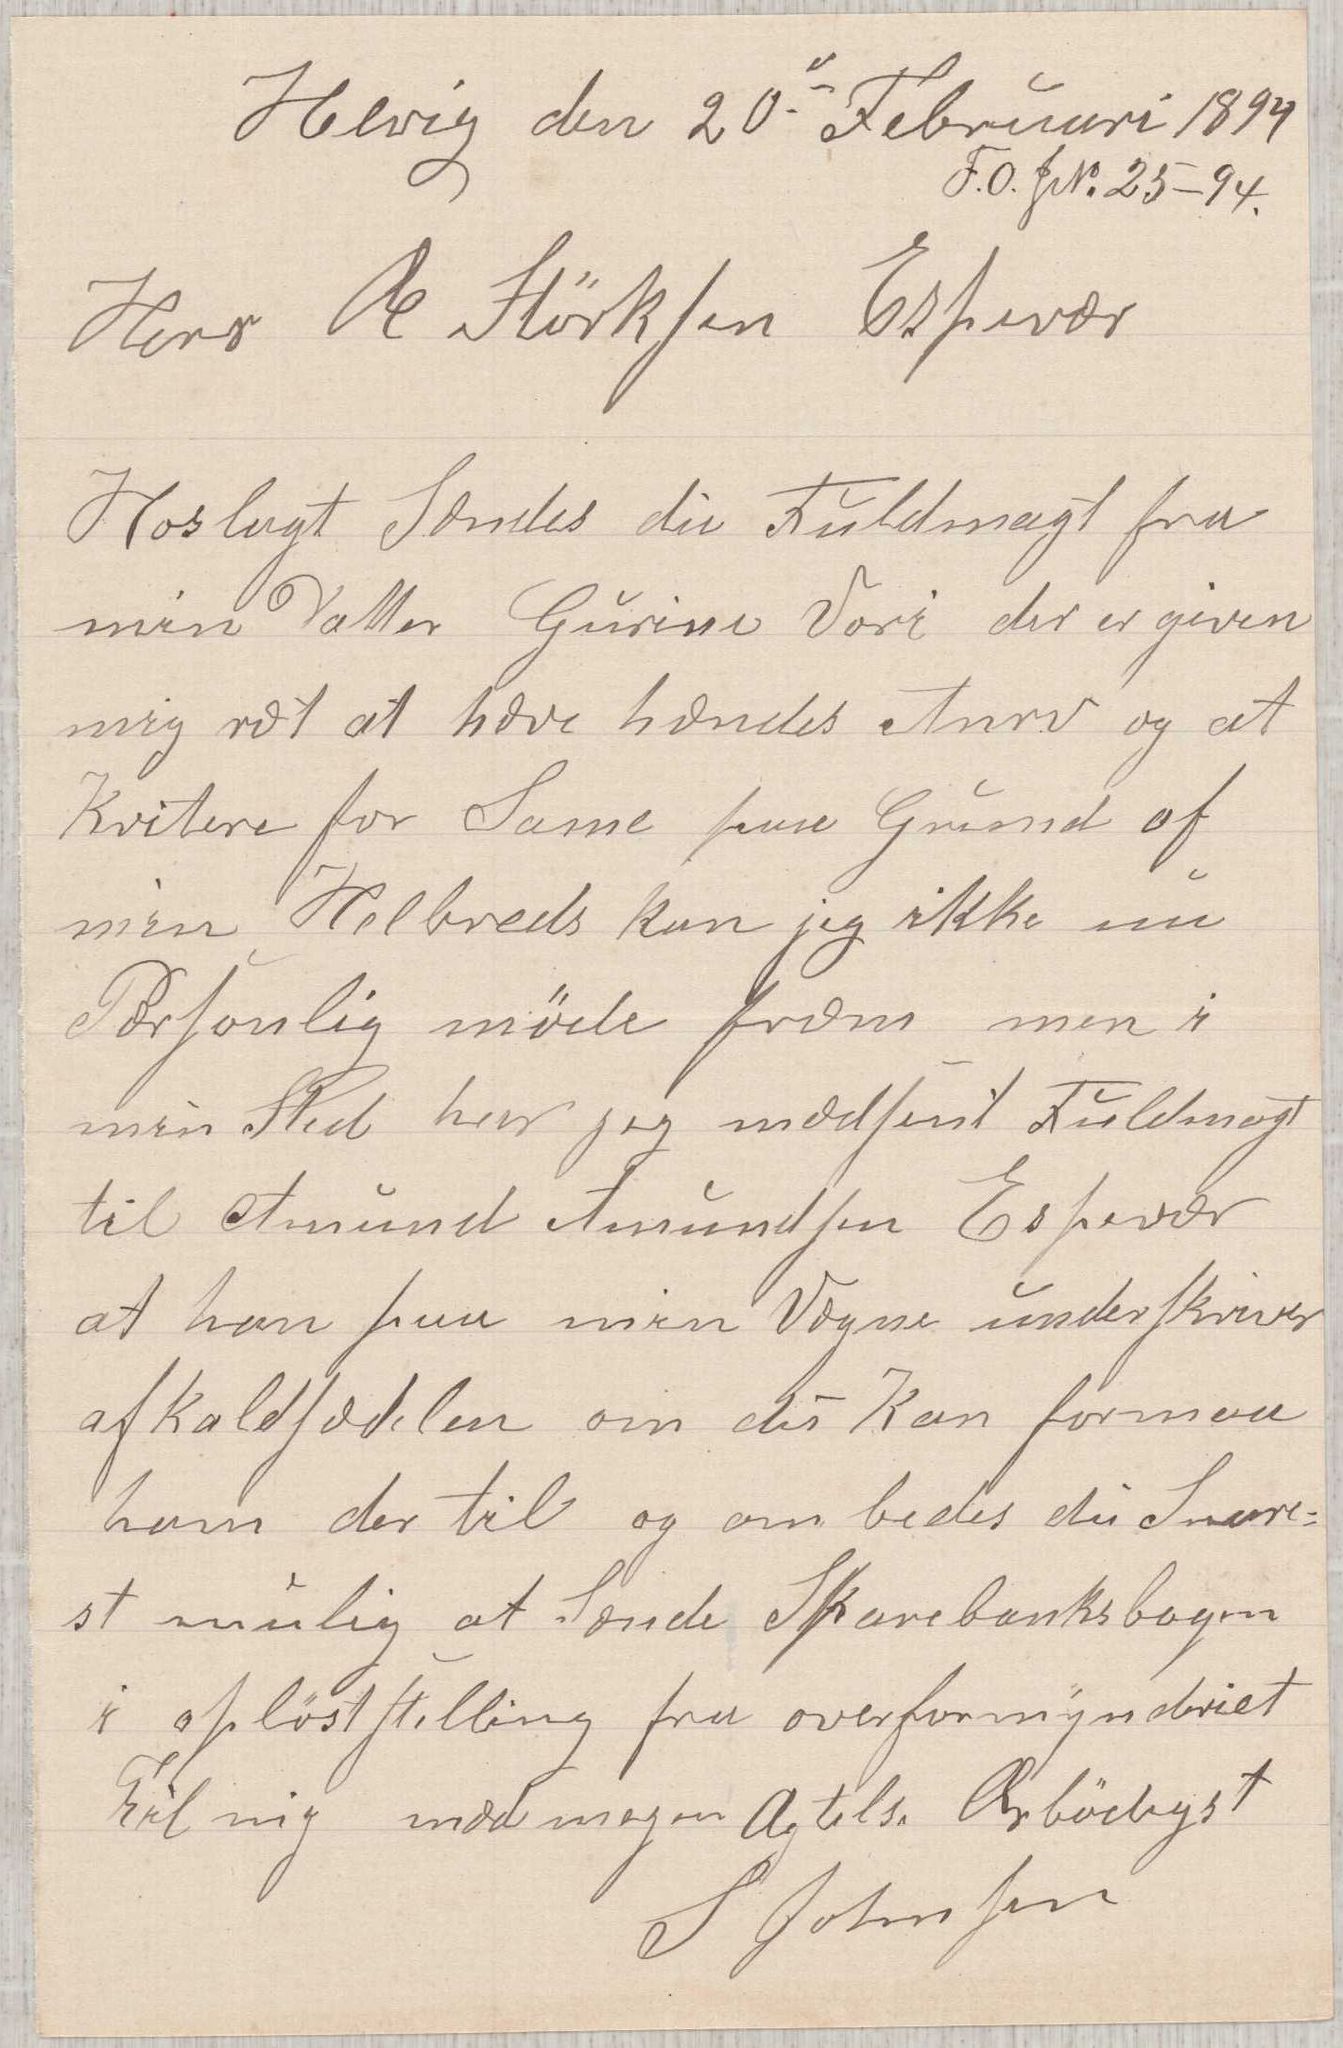 Helvig den 20de Februari 1894
F.O. J№. 25-94.
Herr R Störksen Espevær
Hoslagt Sændes die Fuldmagt fra
min Datter Gurine Vori der er given
mig ræt at hæve hændes Anrv og at
Kvitere for Same paa Grund af
min Helbreds kan jeg ikke nu
Pærsonlig möde fræm men i
min Sted har jeg mædsent Fuldmagt
til Amund Amundsen Espevær
at han paa min Vægne underskriver
afkaldsædelen om du Kan formaa
ham der til og om bedes du Snare=
st mulig at Sænde Sparebanksbogen
i oplöststilling fra overformynderiet
Til mig mæd megen Agtels. Ærbödigst
S Johnsen